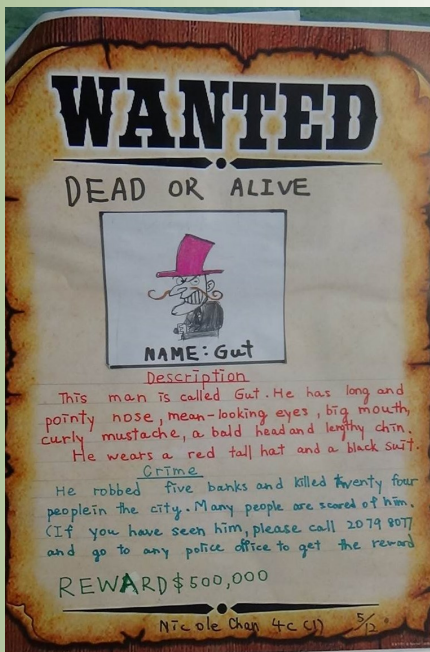 WANTED
DEAD OR ALIVE
NAME: Gut
Description
This man is called Gut. He has long and
pointy nose, mean-looking eyes, big mouth,
curly mustache, a bald head and lengthy chin.
He wears a red tall hat and a black suit.
Crime
He robbed five banks and killed twenty four
people in the city. Many people are scared of him.
(If you have seen him, please call 2079 8077
and go to any police office to get the reward
REWARD $500,000
Nicole Chan 4C (1) 5/12